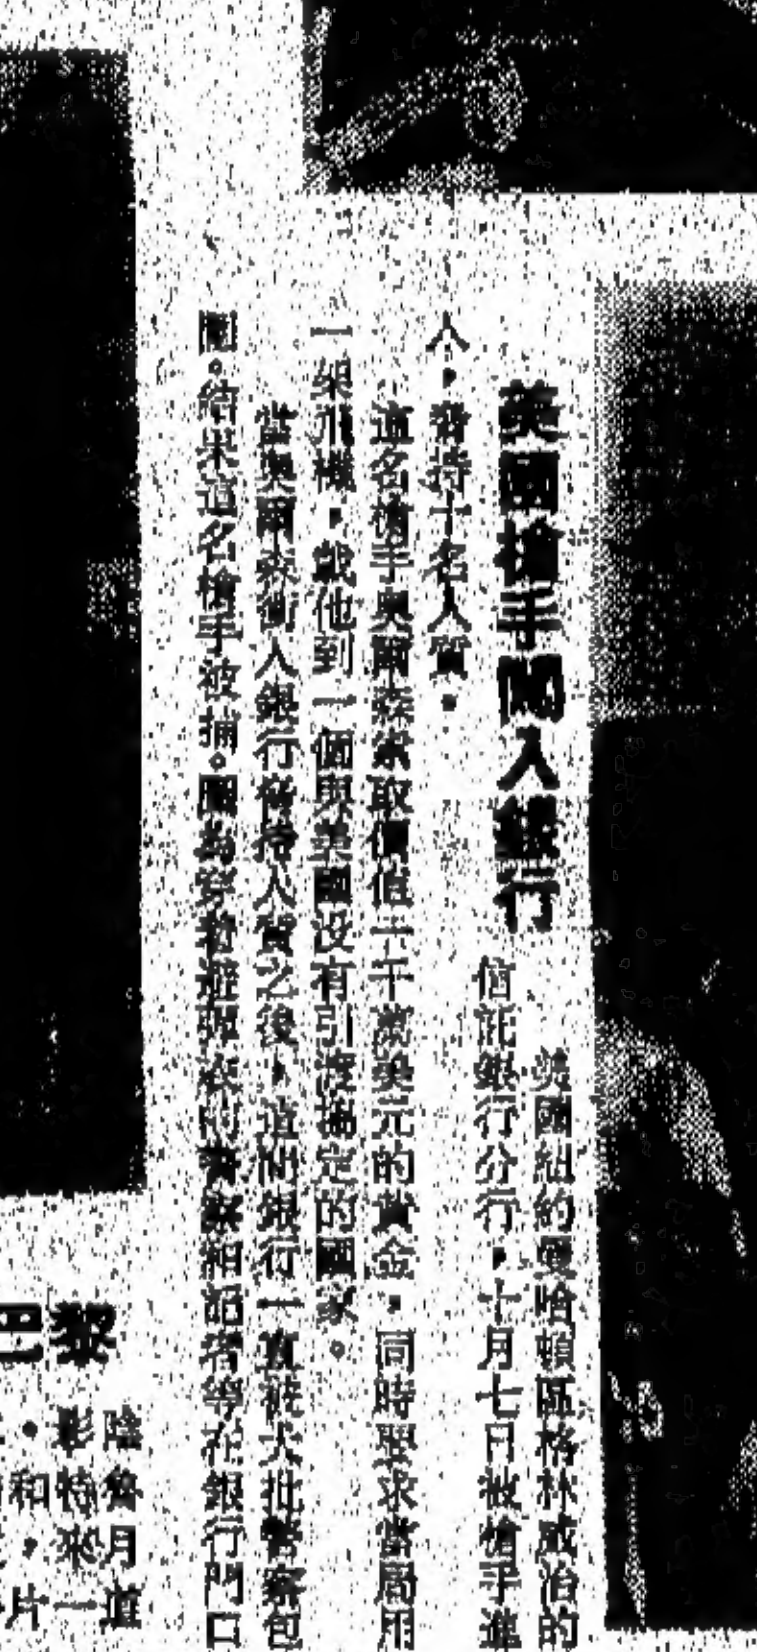 美國槍手闖入銀行
美國紐約曼哈頓區格林威治的
信託銀行分行,十月七日被槍手進
入,脅持十名人質。
這名槍手奧爾森索取價值一千萬美元的黃金,同時要求當局用
一架飛機,載他到一個與美國没有引渡協定的國家。
當奧爾森衝入銀行脅持人質之後,這間銀行一直被大批警察包
圍。結果這名槍手被捕。圖為穿着避彈衣的警察和記者等在銀行門口
巴黎
陰
影
月道
特
來一
和
片